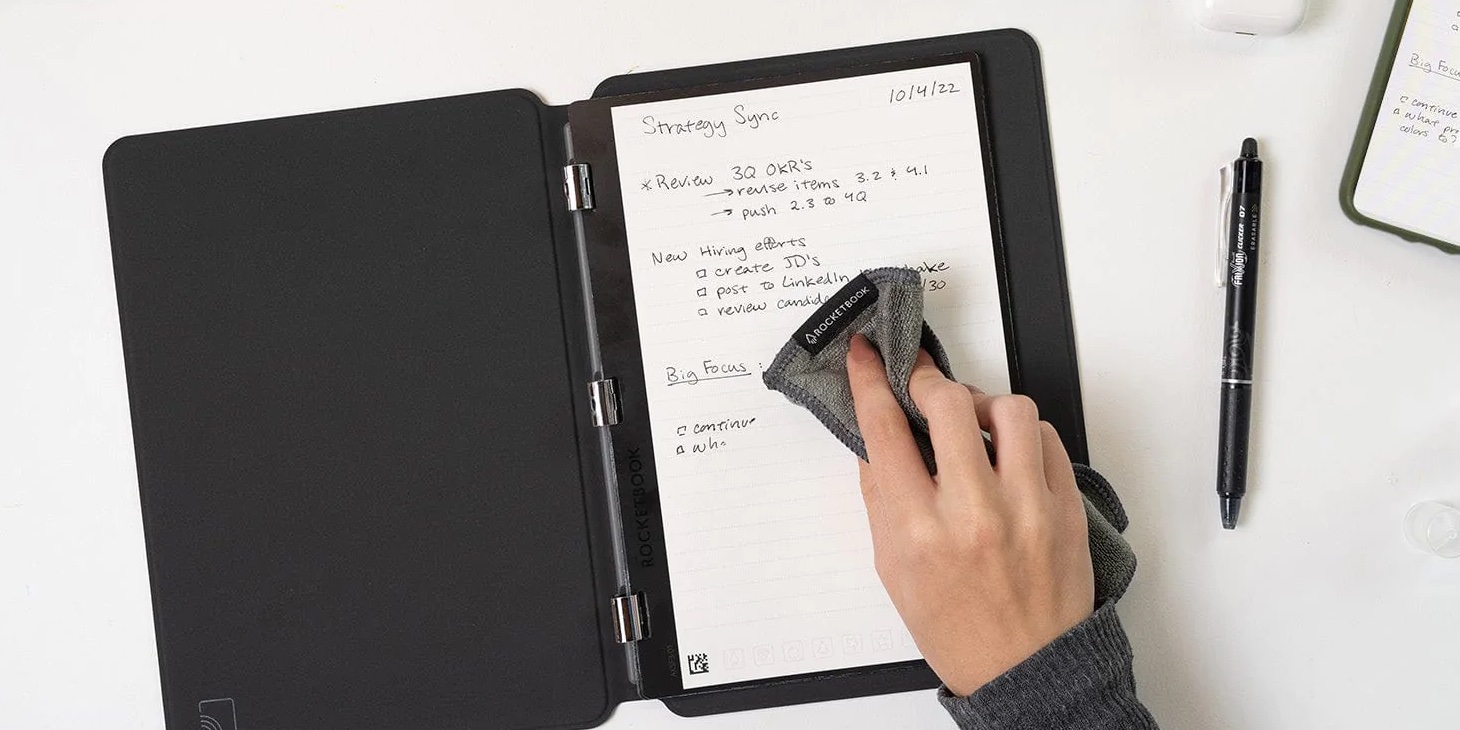 10/4/22
Strategy Sync
*Review 3Q OKR's
→ reuse items 3.2 & 4.1
→ push 2.3 to 4Q
New Hiring efforts
□ create JD's
□ post to LinkedIn
/30
□ review
Big Focus :
□ continue
□
ROCKETBOOK
ROCKETBOOK
FRIXION CLICKER 07
ERASABLE
Big
□ continue
□ what
colors